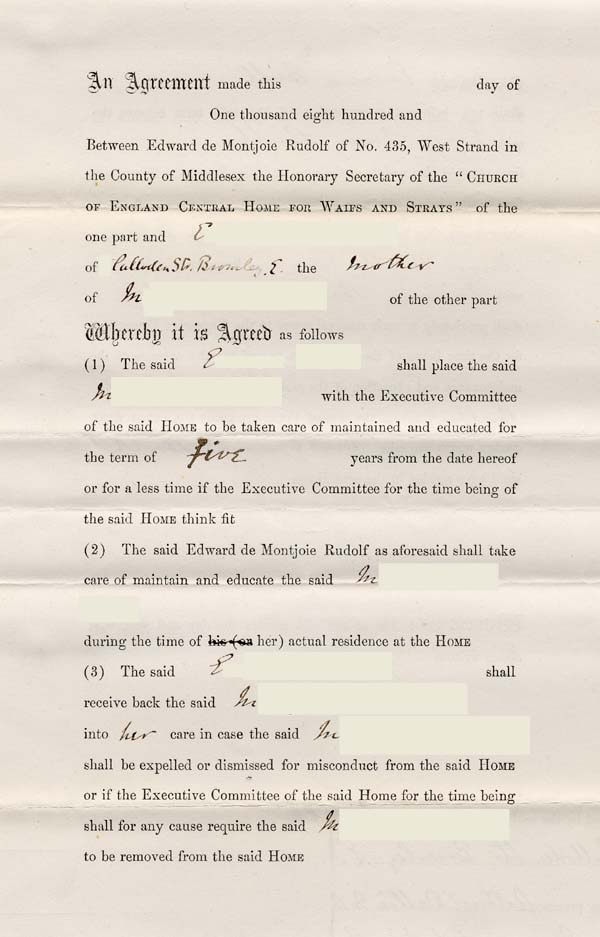 An Agreement made this day of
One thousand eight hundred and
Between Edward de Montjoie Rudolf of No. 435, West Strand in
the County of Middlesex the Honorary Secretary of the “CHURCH
OF ENGLAND CENTRAL HOME FOR WAIFS AND STRAYS” of the
one part and E
of Culloden St. Bromley. E. the Mother
of M of the other part
Whereby it is Agreed as follows
(1) The said E shall place the said
M with the Executive Committee
of the said HOME to be taken care of maintained and educated for
the term of Five years from the date hereof
or for a less time if the Executive Committee for the time being of
the said HOME think fit
(2) The said Edward de Montjoie Rudolf as aforesaid shall take
care of maintain and educate the said M
during the time of his (or her) actual residence at the HOME
(3) The said E shall
receive back the said M
into her care in case the said M
shall be expelled or dismissed for misconduct from the said HOME
or if the Executive Committee of the said Home for the time being
shall for any cause require the said M
to be removed from the said HOME